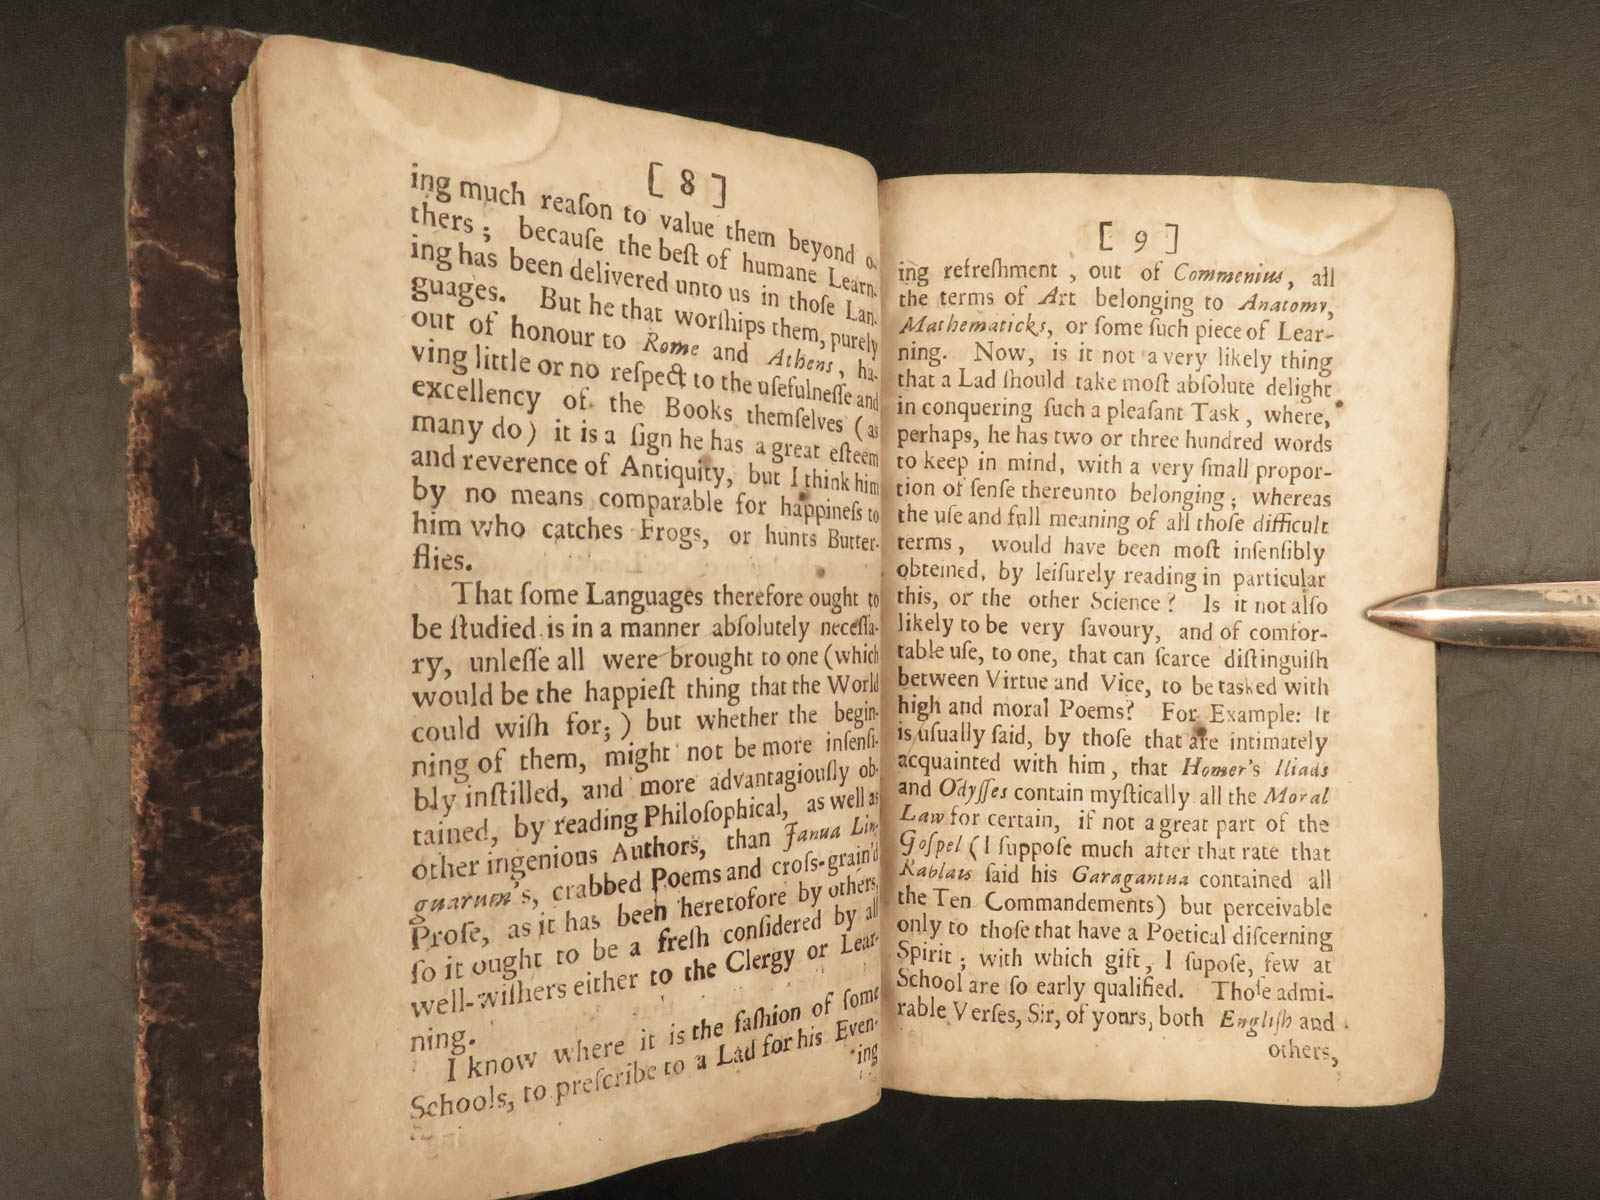 [ 8 ]
ing much reaſon to value them beyond o-
thers; becauſe the beſt of humane Learn-
ing has been delivered unto us in thoſe Lan-
guages. But he that worſhips them, purely
out of honour to Rome and Athens, ha-
ving little or no reſpect to the uſefulneſſe and
excellency of the Books themſelves (as
many do) it is a ſign he has a great eſteem
and reverence of Antiquity, but I think him
by no means comparable for happineſs to
him who catches Frogs, or hunts Butter-
flies.
That ſome Languages therefore ought to
be ſtudied is in a manner abſolutely neceſſa-
ry, unleſſe all were brought to one (which
would be the happieſt thing that the World
could wiſh for;) but whether the begin-
ning of them, might not be more inſenſi-
bly inſtilled, and more advantagiouſly ob-
tained, by reading Philoſophical, as well as
other ingenious Authors, than Janua Lin-
guarum's, crabbed Poems and croſs-grain'd
Proſe, as it has been heretofore by others,
ſo it ought to be a freſh conſidered by all
well-wiſhers either to the Clergy or Lear-
ning.
I know where it is the faſhion of ſome
Schools, to preſcribe to a Lad for his Even-
ing
[ 9 ]
ing refreſhment , out of Commenius, all
the terms of Art belonging to Anatomy,
Mathematicks, or ſome ſuch piece of Lear-
ning. Now, is it not a very likely thing
that a Lad ſhould take moſt abſolute delight
in conquering ſuch a pleaſant Task, where,
perhaps, he has two or three hundred words
to keep in mind, with a very ſmall propor-
tion of ſenſe thereunto belonging; whereas
the uſe and full meaning of all thoſe difficult
terms, would have been moſt inſenſibly
obteined, by leiſurely reading in particular
this, or the other Science? Is it not alſo
likely to be very ſavoury, and of comfor-
table uſe, to one, that can ſcarce diſtinguiſh
between Virtue and Vice, to be tasked with
high and moral Poems? For Example: It
is uſually ſaid, by thoſe that are intimately
acquainted with him, that Homer's Iliads
and Odyſſes contain myſtically all the Moral
Law for certain, if not a great part of the
Goſpel (I ſuppoſe much after that rate that
Rablais ſaid his Garagantua contained all
the Ten Commandements) but perceivable
only to thoſe that have a Poetical diſcerning
Spirit; with which gift, I ſupoſe, few at
School are ſo early qualified. Thoſe admi-
rable Verſes, Sir, of yours, both Engliſh and
others,